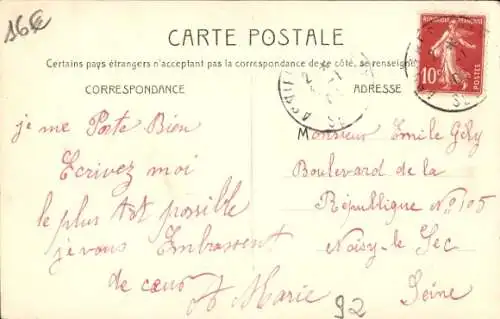 16€
CARTE POSTALE
Certains pays étrangers n'acceptant pas la correspondance de ce côté, se renseigner
CORRESPONDANCE
ADRESSE
REPUBLIQUE FRANÇAISE
10c
POSTES
je me Porte Bien
Ecrivez moi
le plus tôt possible
je vous Embrassent
de cœur
Marie
Monsieur Emile Gély
Boulevard de la
République No 105
Noisy-le Sec
Seine
92